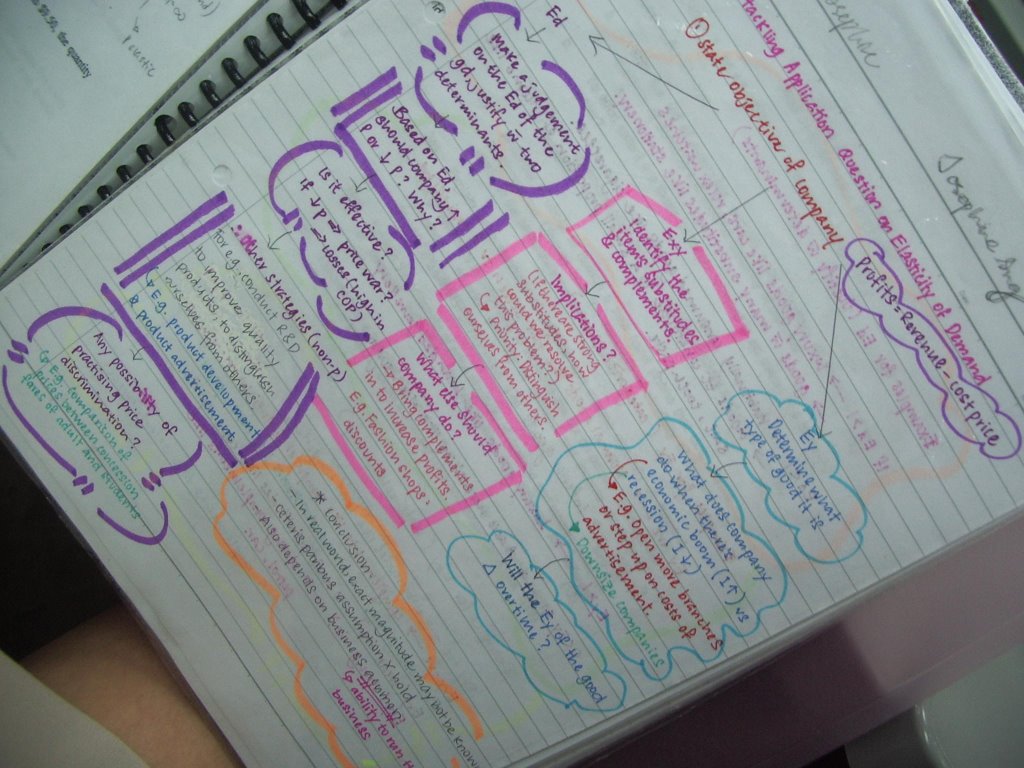 Josephine
Josephine
Tackling Application Question on Elasticity of Demand
① state objective of company
Profits = Revenue - cost price
Ed
make a judgement
on the Ed of the
gd, justify w two
determinants.
Based on Ed,
should company ↑
P or ↓ P? Why?
Is it effective?
if ↓ P ⇒ price war?
⇒ losses (high in
COP)
∴ other strategies (non-p)
for e.g. conduct R&D
to improve quality
products, to distinguish
ourselves from others
↳ E.g. product development
& product advertisement
Any possibility of
practising price
discrimination?
↳ E.g. comparison of
prices between concession
fares of adult and students
Exy
identify the
items substitutes
& complements.
Implications?
(if there are strong
substitutes, how
could we solve
this problem?)
↳ Priority: Distinguish
ourselves from others
What else should
company do?
→ Bring complements
in to increase profits
E.g. Fashion shops:
discounts
Ey
Determine what
type of good it is
What does company
do when there's
economic boom (I↑) vs
recession (I↓)
↳ E.g open more branches
or step up on costs of
advertisement.
→ Downsize companies
Will the Ey of the good
Δ overtime?
* Conclusion
- In real world, exact magnitude may not be known
- ceteris paribus assumption x hold
- Also depends on business acumen!
↳ ability to run
business
$8.50, the quantity